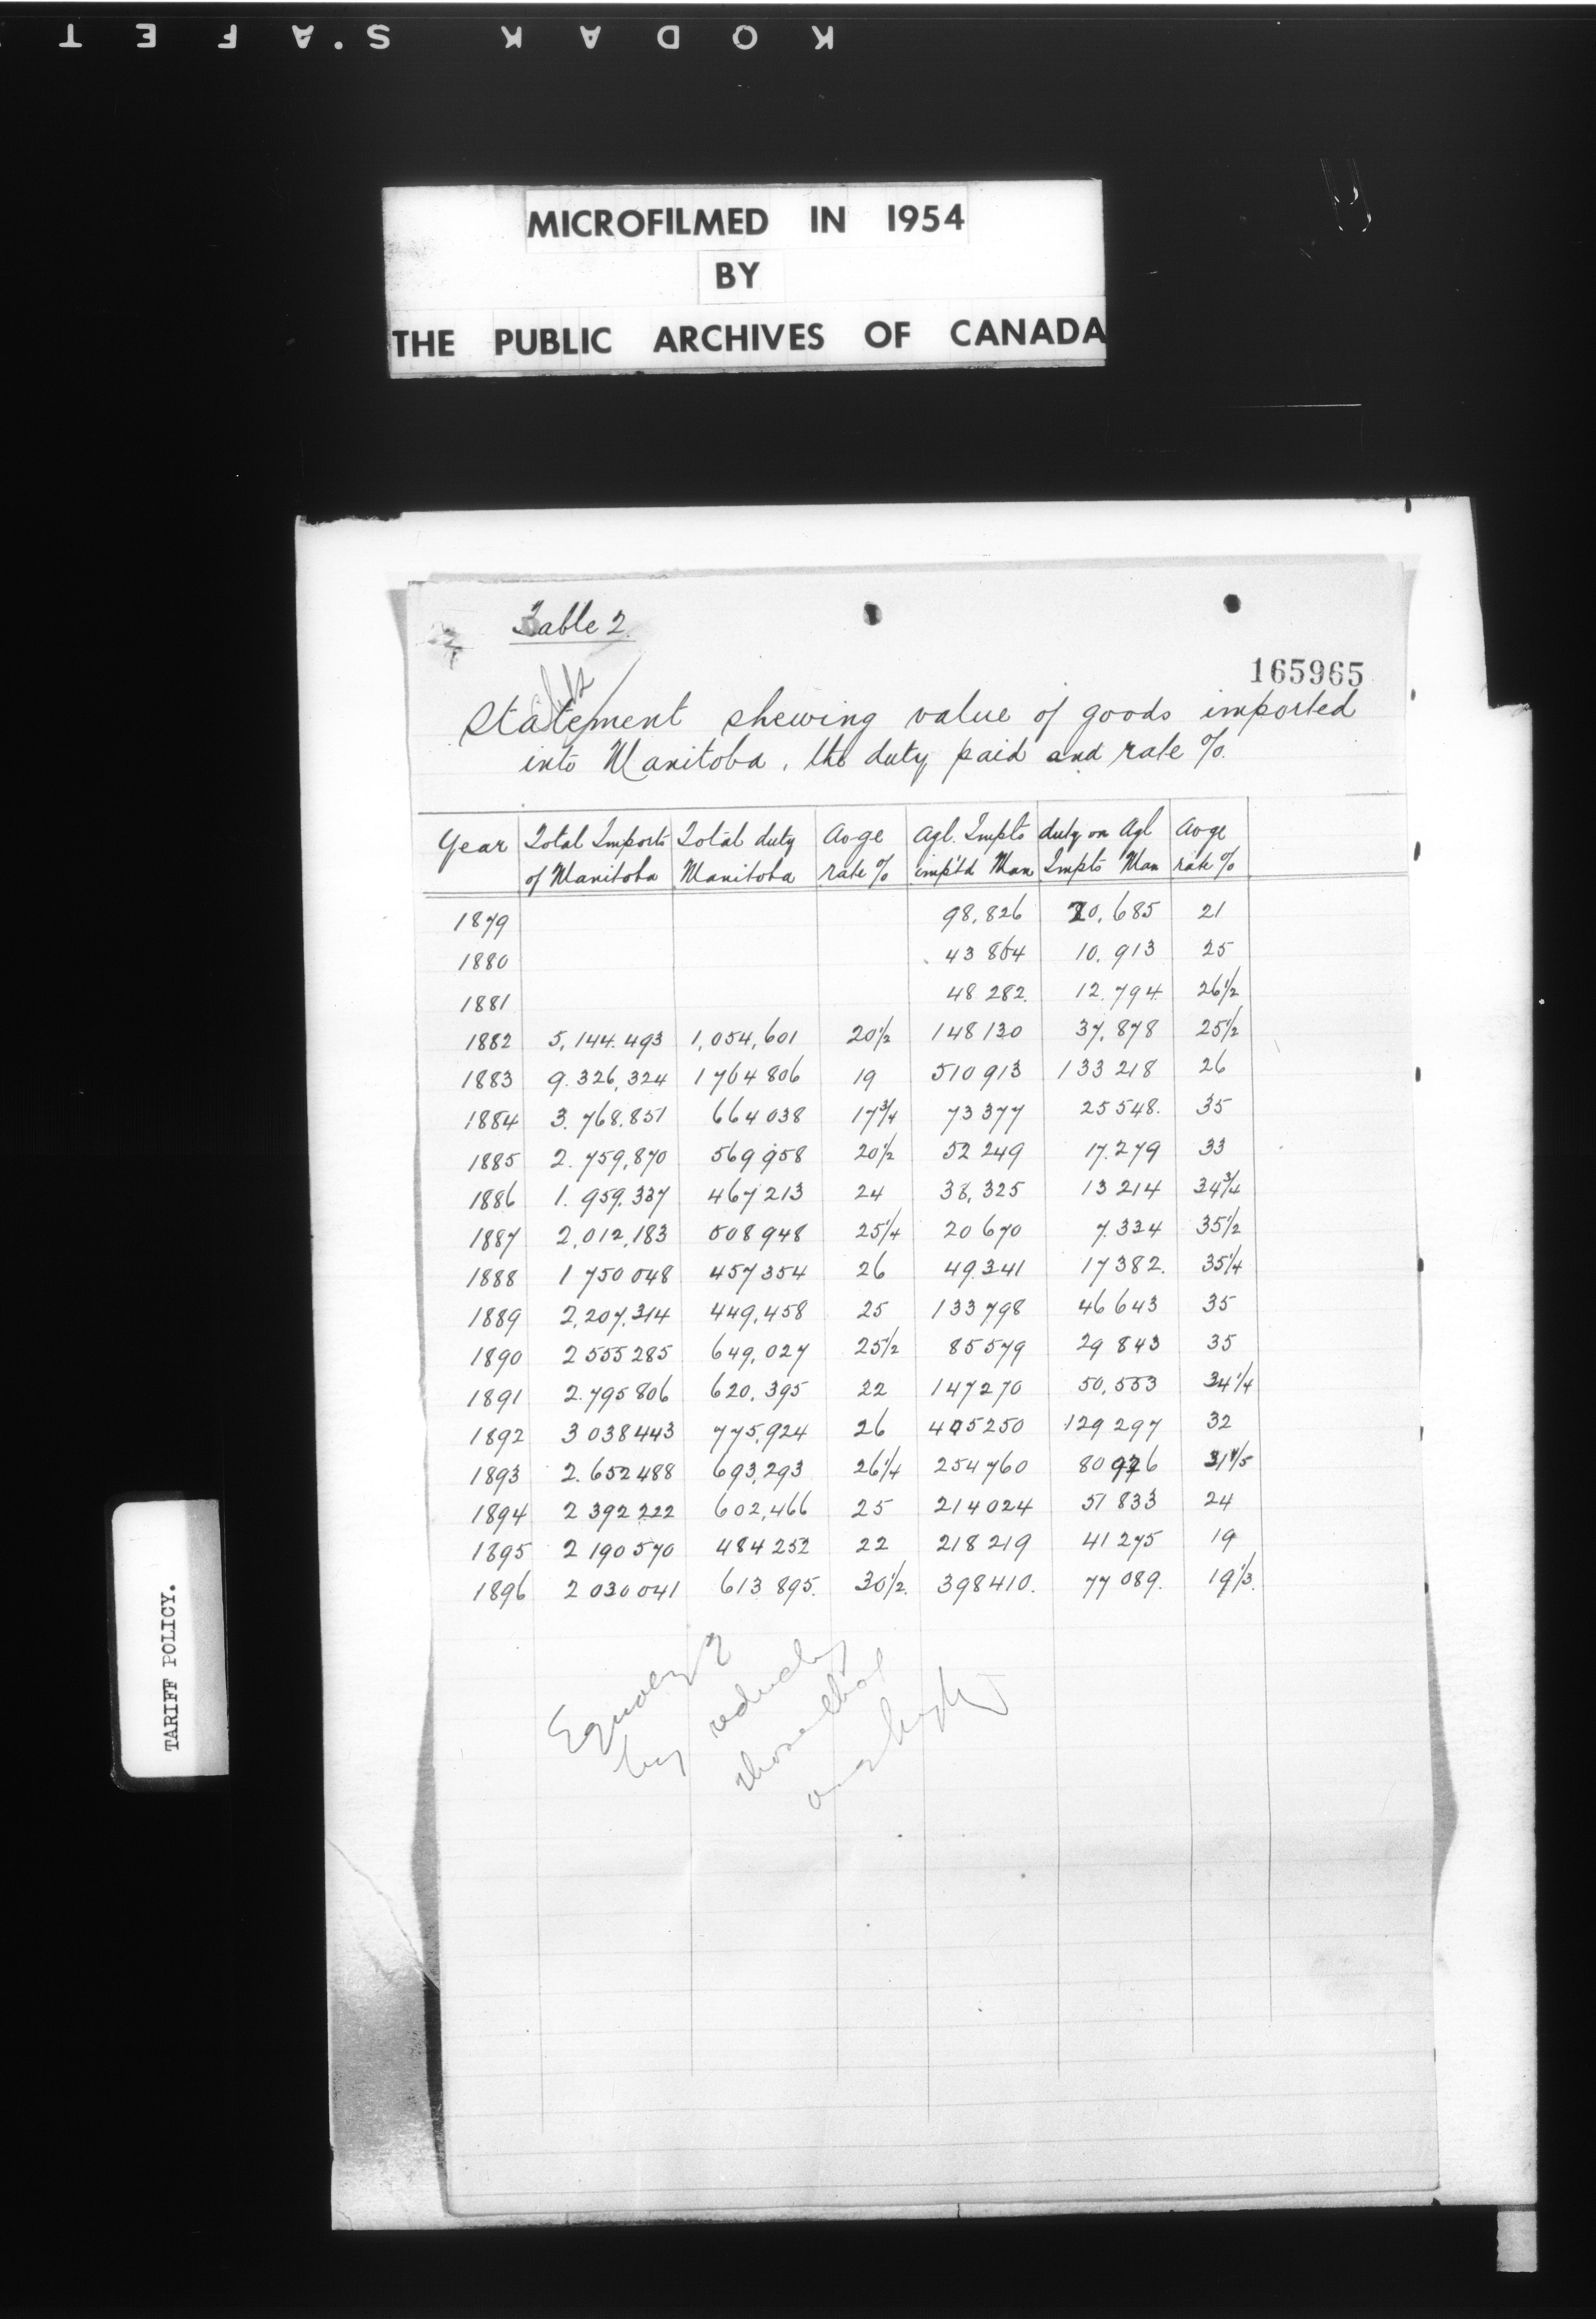 KODAK S'AFETY
MICROFILMED IN 1954
BY
THE PUBLIC ARCHIVES OF CANADA
Table 2.
165965
Statement shewing value of goods imported
into Manitoba, the duty paid and rate %.
Year | Total Imports of Manitoba | Total duty Manitoba | Avge rate % | Agl. Impts imp'td Man | duty on Agl Impts Man | Avge rate %
1879 | | | | 98,826 | 20,685 | 21
1880 | | | | 43 864 | 10.913 | 25
1881 | | | | 48 282. | 12.794 | 26½
1882 | 5,144.493 | 1,054,601 | 20½ | 148 130 | 37,878 | 25½
1883 | 9.326,324 | 1 764 806 | 19 | 510 913 | 133 218 | 26
1884 | 3.768.851 | 664 038 | 17¾ | 73 377 | 25 548. | 35
1885 | 2.759,870 | 569 958 | 20½ | 52 249 | 17.279 | 33
1886 | 1.959.337 | 467 213 | 24 | 38,325 | 13 214 | 34¾
1887 | 2,012,183 | 508 948 | 25¼ | 20 670 | 7.334 | 35½
1888 | 1 750 048 | 457 354 | 26 | 49.341 | 17 382. | 35¼
1889 | 2,207.314 | 449,458 | 25 | 133 798 | 46 643 | 35
1890 | 2 555 285 | 649,027 | 25½ | 85 579 | 29 843 | 35
1891 | 2.795 806 | 620,395 | 22 | 147 270 | 50,553 | 34¼
1892 | 3 038 443 | 775,924 | 26 | 405 250 | 129 297 | 32
1893 | 2.652 488 | 693,293 | 26¼ | 254 760 | 80 926 | 31⅘
1894 | 2 392 222 | 602,466 | 25 | 214 024 | 51 833 | 24
1895 | 2 190 570 | 484 252 | 22 | 218 219 | 41 275 | 19
1896 | 2 030 041 | 613 895. | 30½. | 398 410. | 77 089. | 19⅓.
by reducing
those that
TARIFF POLICY.